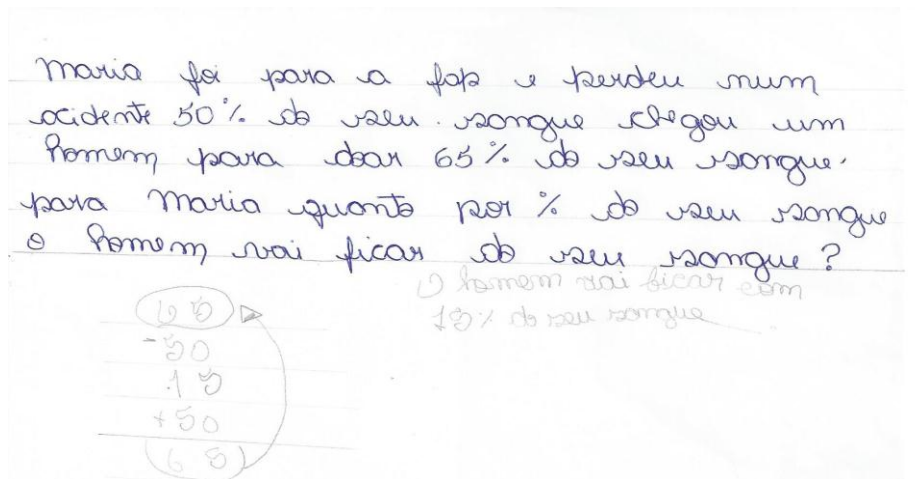 Maria foi para a fap e perdeu num
acidente 50% do seu sangue chegou um
homem para doar 65% do seu sangue.
para Maria quanto por % do seu sangue
o homem vai ficar do seu sangue?
O homem vai ficar com
15% do seu sangue
65
-50
15
+50
65